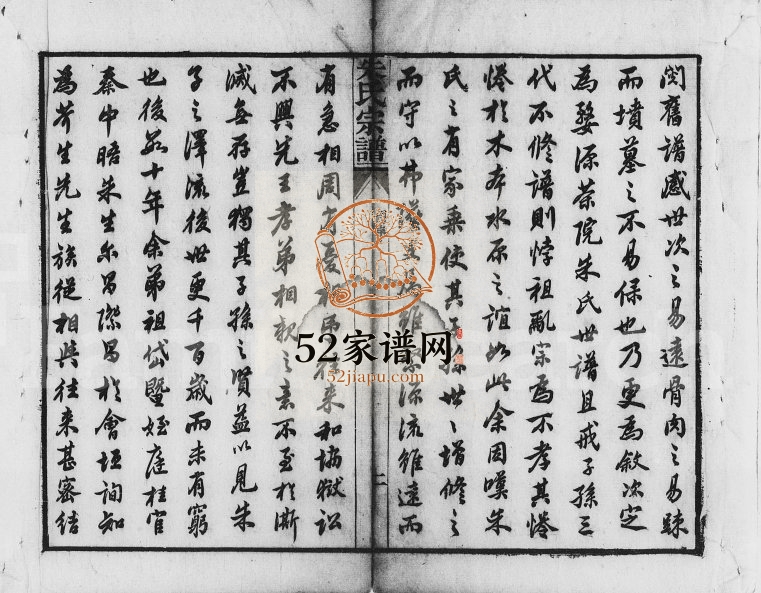 閱舊譜感世次之易遠骨肉之易踈
而墳墓之不易保也乃更為敘次定
為婺源茶院朱氏世譜且戒子孫三
代不修譜則悖祖亂宗為不孝其惓
惓於木本水原之誼如此余因嘆朱
氏之有家乘使其子孫世〻增修之
而守以弗 源流雖遠而
朱氏宗譜
二
有急相周 來和協獄訟
不興先王孝弟相親之意不至於澌
滅無存豈獨其子孫之賢益以見朱
子之澤流後世更千百歲而未有窮
也後數十年余弟祖岱暨姪庭桂官
秦中晤朱生尔昌際昌於會垣詢知
為芥生先生族從相與往来甚密結
52家谱网
52jiapu.com